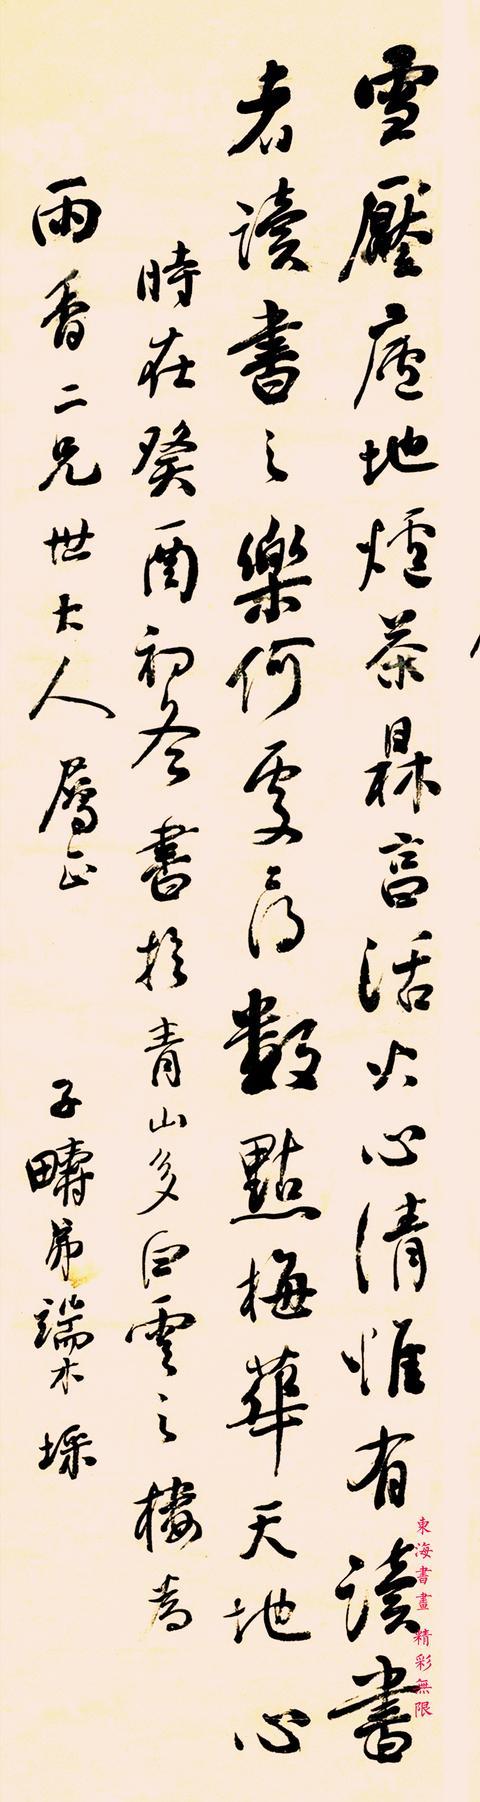 雪壓廬地爐茶鼎亯活火心清惟有讀書
者讀書之樂何處尋數點梅華天地心
時在癸酉初冬書於青山多白雲之樓為
雨香二兄世大人屬正 子疇弟端木埰
東海書畫 精彩無限